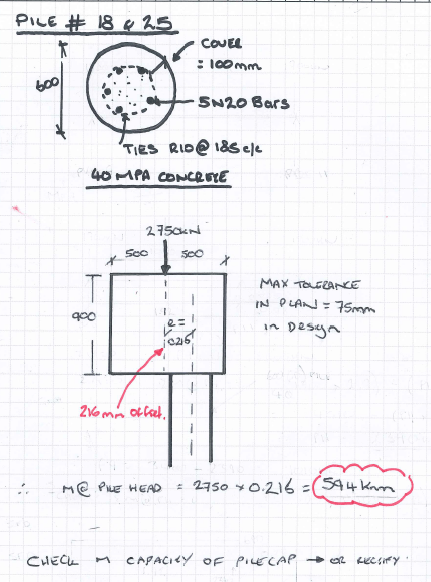 PILE # 18 & 25
COVER
= 100mm
600
5N20 Bars
TIES R10@ 185 c/c
40 MPA CONCRETE
2750kN
500 500
900
MAX TOLERANCE
IN PLAN = 75mm
in Design
e =
0.216
216mm offset.
∴ M@ PILE HEAD = 2750 x 0.216 = 594 kNm
CHECK M CAPACITY OF PILECAP → or RECTIFY.